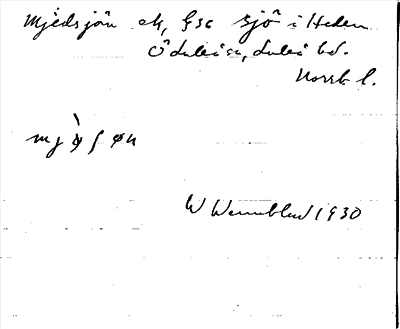 Mjödsjön ek, fsc sjö i Heden
Ö Luleå sn, Luleå td.
Norrb l.
mj ʃ øn
W Wennblad 1930